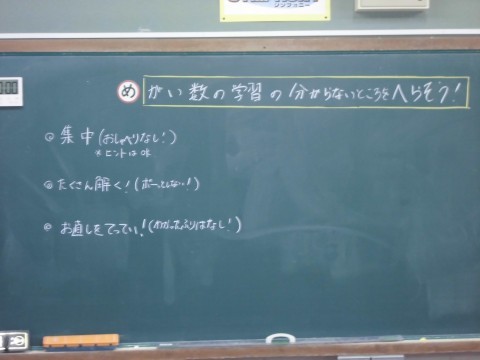 シンフォニー
め がい数の学習の分からないところをへらそう!
◎集中(おしゃべりなし!)
*ヒントはOK
◎たくさん解く!(ボーっとしない!)
◎お直しをてってい!(わかったふりはなし!)